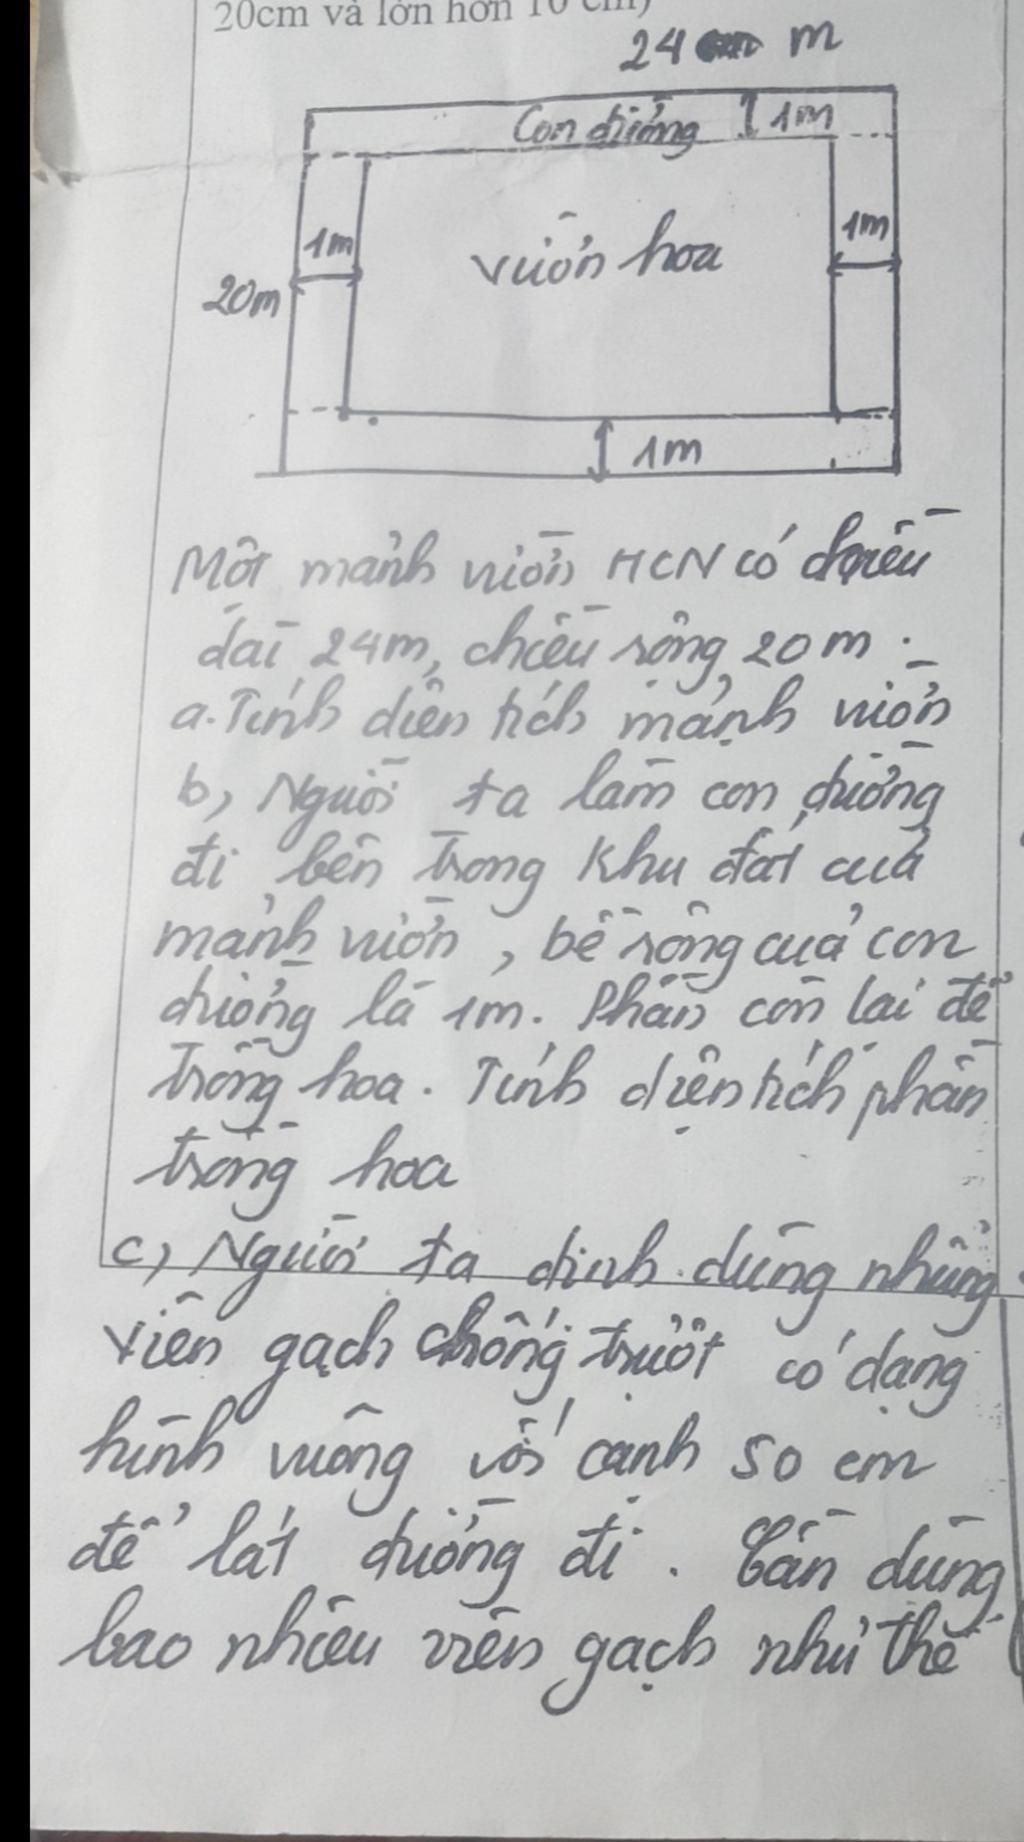 20cm và lớn hơn 10 cm)
24 m
Con đường 1m
1m
vườn hoa
1m
20m
1m
Một mảnh vườn HCN có chiều
dài 24m, chiều rộng 20m.
a. Tính diện tích mảnh vườn
b, Người ta làm con đường
đi bên trong khu đất của
mảnh vườn, bề rộng của con
đường là 1m. Phần còn lại để
trồng hoa. Tính diện tích phần
trồng hoa
c, Người ta định dùng những
viên gạch chống trượt có dạng
hình vuông với cạnh 50 cm
để lát đường đi. Cần dùng
bao nhiêu viên gạch như thế